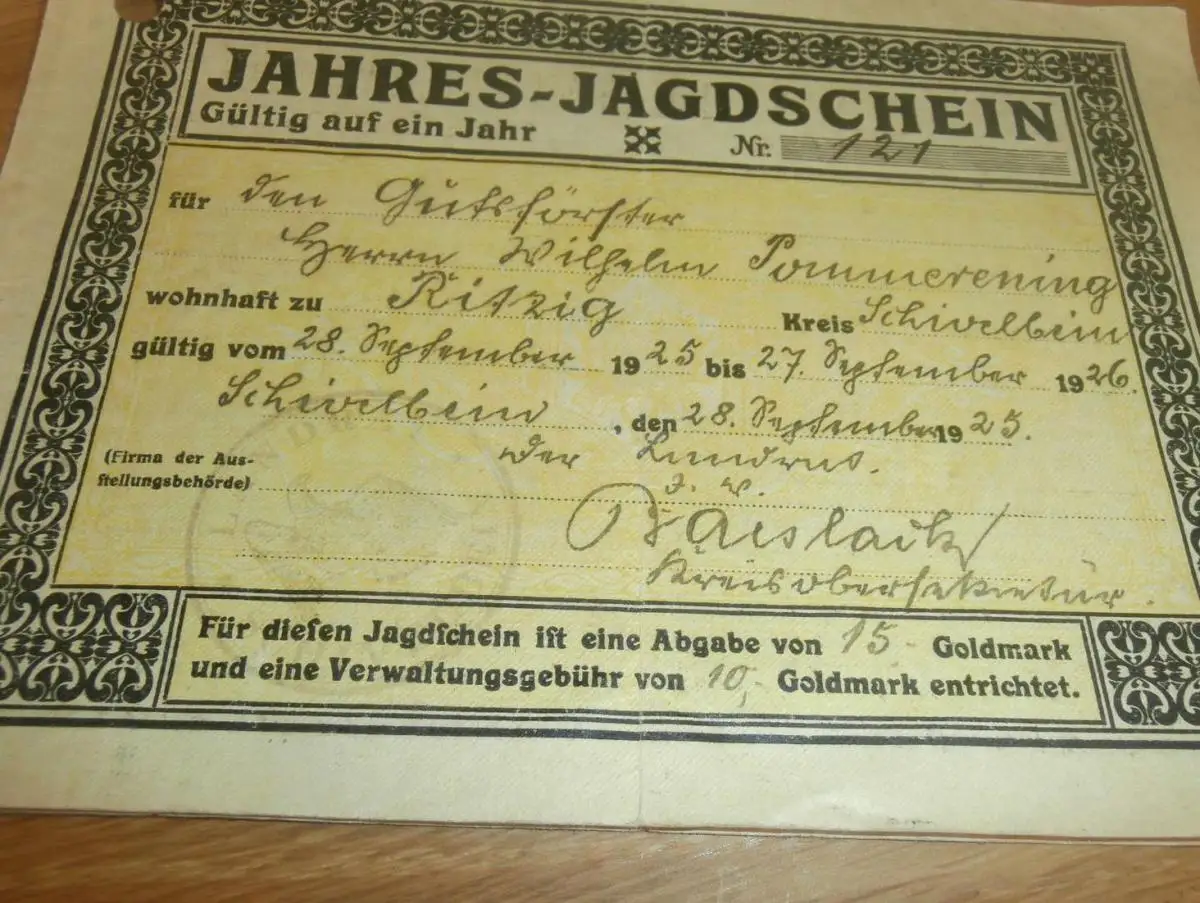 JAHRES-JAGDSCHEIN
Gültig auf ein Jahr Nr. 121
für den Gutsförster
Herrn Wilhelm Pommerening
wohnhaft zu Ritzig Kreis Schivelbein
gültig vom 28. September 1925 bis 27. September 1926.
Schivelbein, den 28. September 1925.
(Firma der Aus-
ſtellungsbehörde)
Der Landrat.
J. V.
Kreisobersekretär.
Für dieſen Jagdſchein iſt eine Abgabe von 15,- Goldmark
und eine Verwaltungsgebühr von 10,- Goldmark entrichtet.